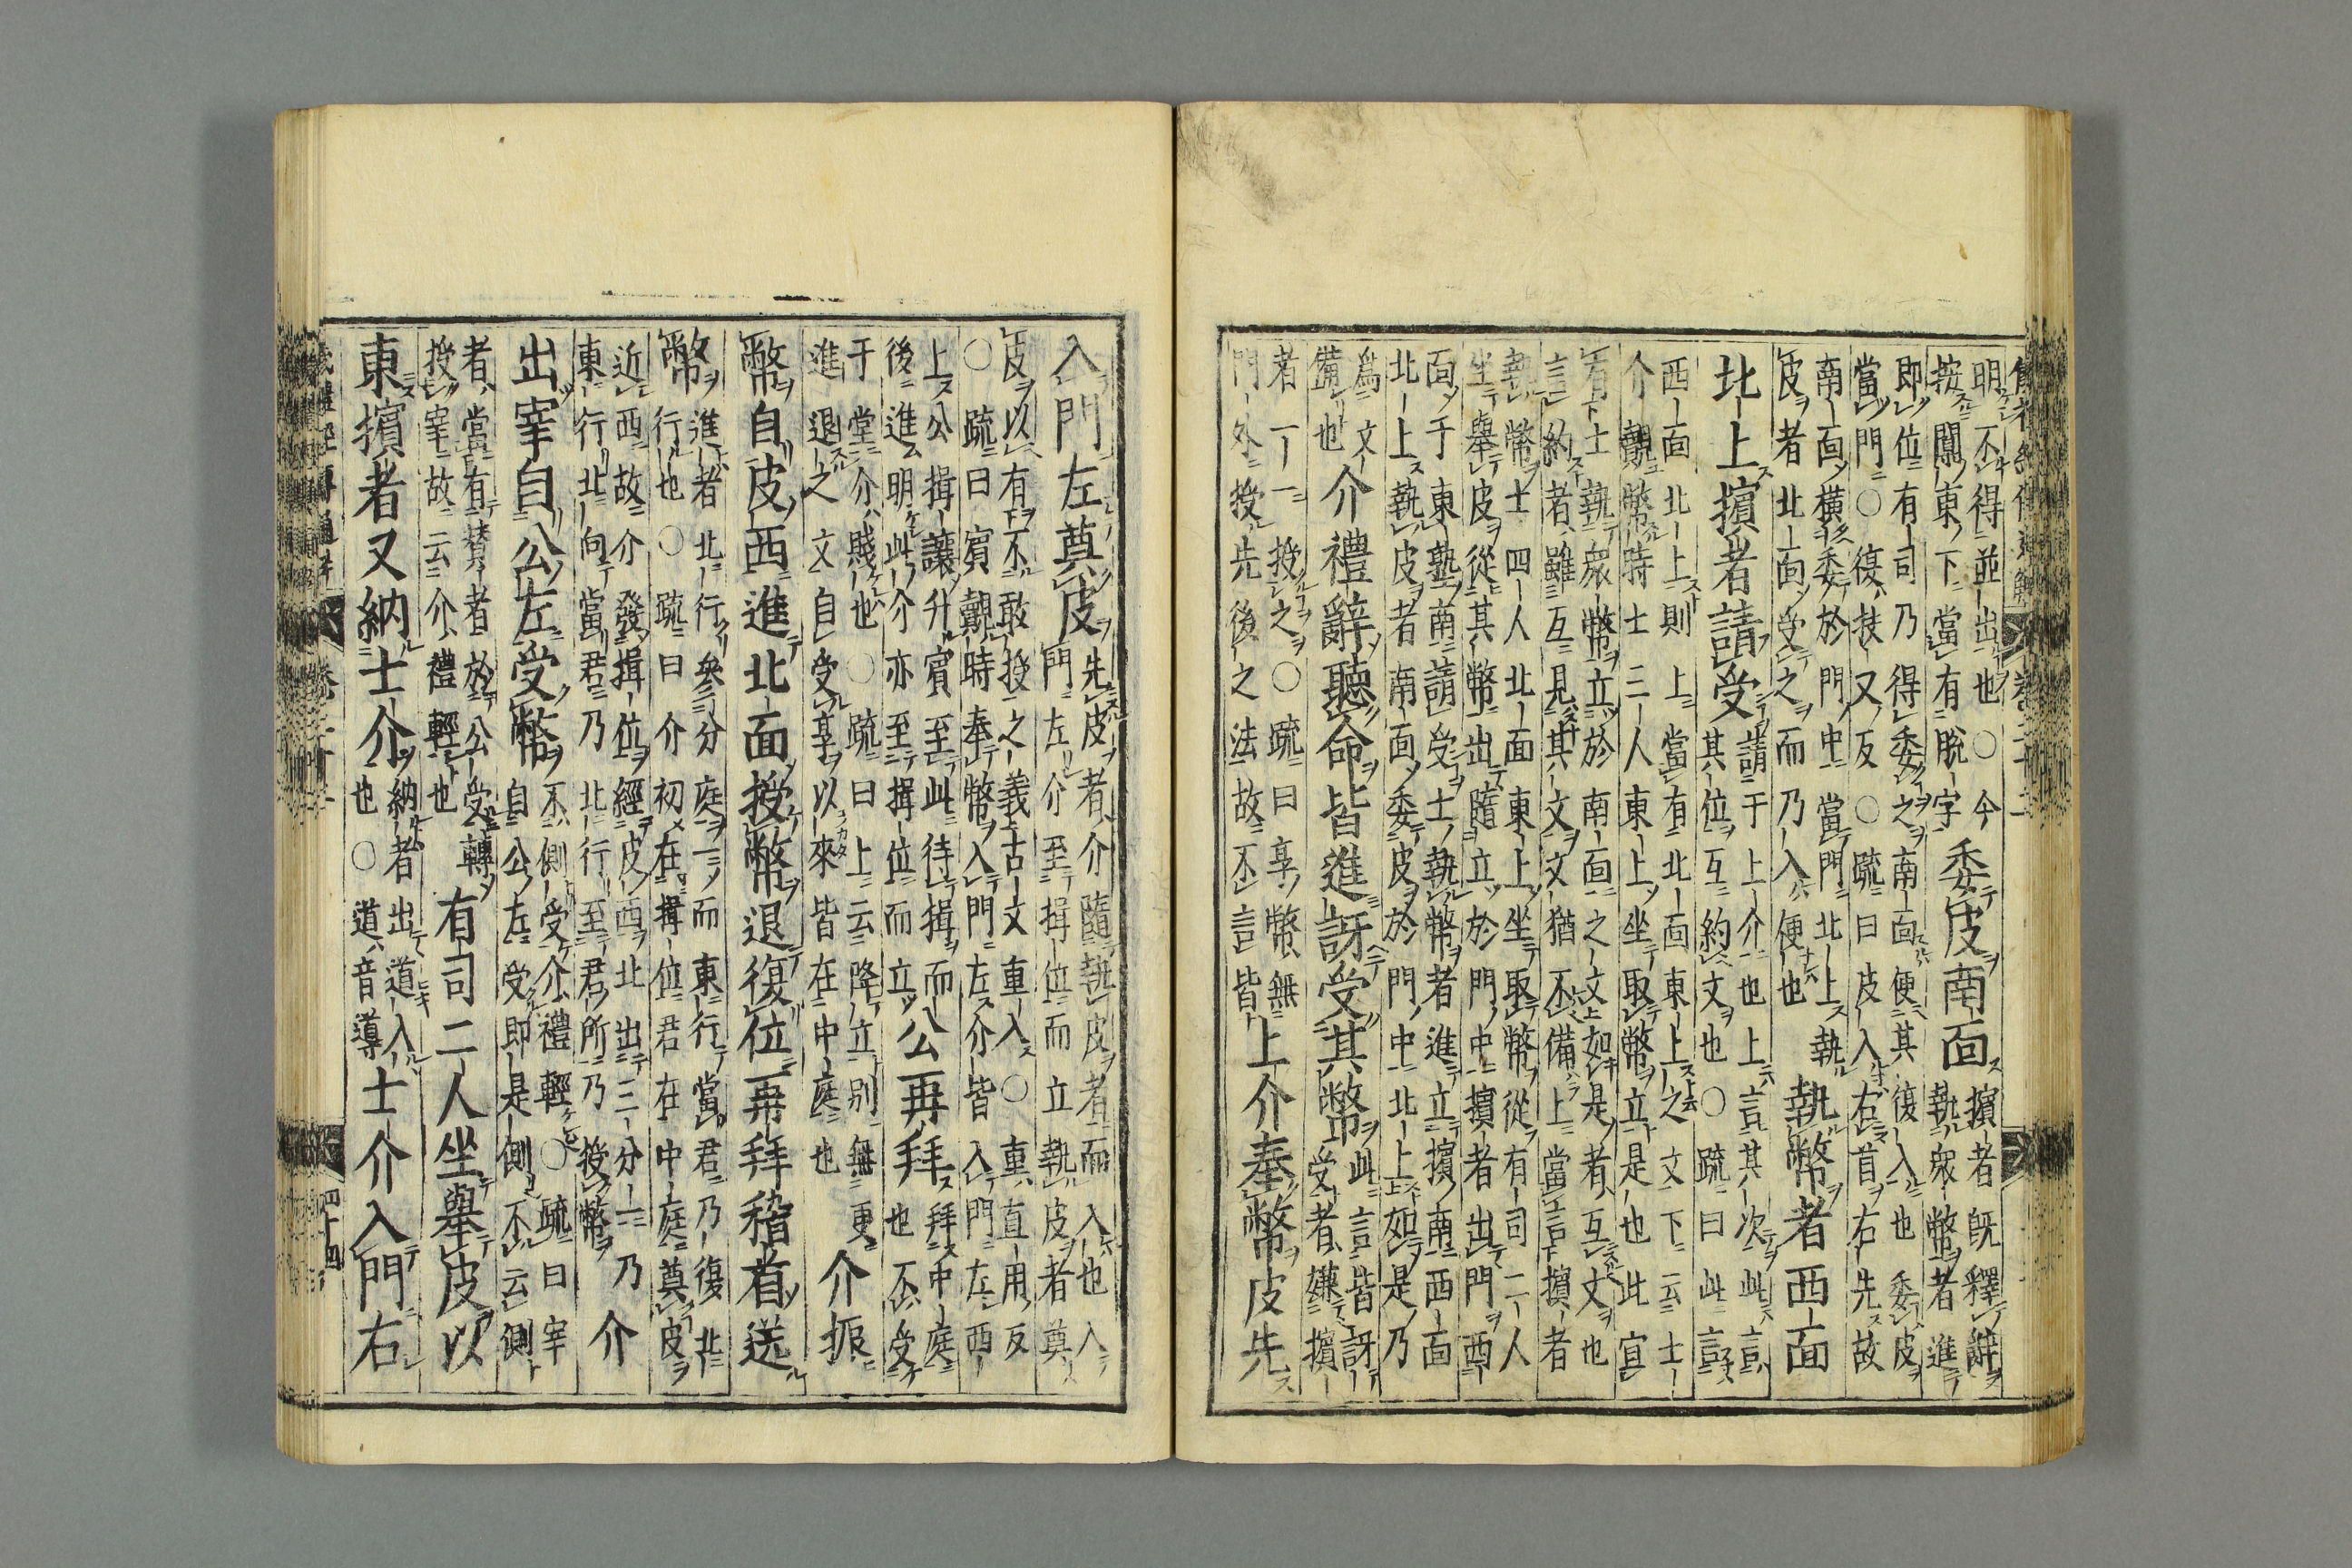 明不得並出也○今
按闑東下當有脫字
委皮南面
擯者旣釋辭
執眾幣者進
即位有司乃得委之南面便其復入也委皮
當門○復扶又反○疏曰皮入右首右先故
南面橫委於門中當門北上執
皮者北面受之而乃入便也
執幣者西面
北上擯者請受
請于上介也上言其次此言
其位互約文也○疏曰此言
西面北上則上當有北面東上之文下云士
介覿幣時士三人東上坐取幣立是也此宜
有士執眾幣立於南面之文如是者互文也
言約者雖互見其文文猶不備上當言擯者
執幣士四人北面東上坐取幣從有司二人
坐舉皮從其幣出隨立於門中擯者出門西
面于東塾南請受士執幣者進立擯南西面
北上執皮者南面委皮於門中北上如是乃
爲文
備也
介禮辭聽命皆進訝受其幣
此言皆訝
受者嫌擯
者一一授之○疏曰享幣無
門外授先後之法故不言皆
上介奉幣皮先
入門左奠皮
先皮者介隨執皮者而入也入
門左介至揖位而立執皮者奠
皮以有不敢授之義古文重入○重直用反
○疏曰賓覿時奉幣入門左介皆入門左西
上公揖讓升賓至此待揖而
後進明此介亦至揖位而立
公再拜
拜中庭
也不受
于堂介賤也○疏曰上云降立別無更
進退之文自受享以來皆在中庭也
介振
幣自皮西進北面授幣退復位再拜稽首送
幣
進者北行參分庭一而東行當君乃復北
行也○疏曰介初在揖位君在中庭奠皮
近西故介發揖位經皮西北出三分一乃
東行北向當君乃北行至君所乃授幣
介
出宰自公左受幣
不側受介禮輕○疏曰宰
自公左受即是側不云側
者當有贊者於公受轉
授宰故云介禮輕也
有司二人坐舉皮以
東擯者又納士介
納者出道入
也○道音導
士介入門右
四十四